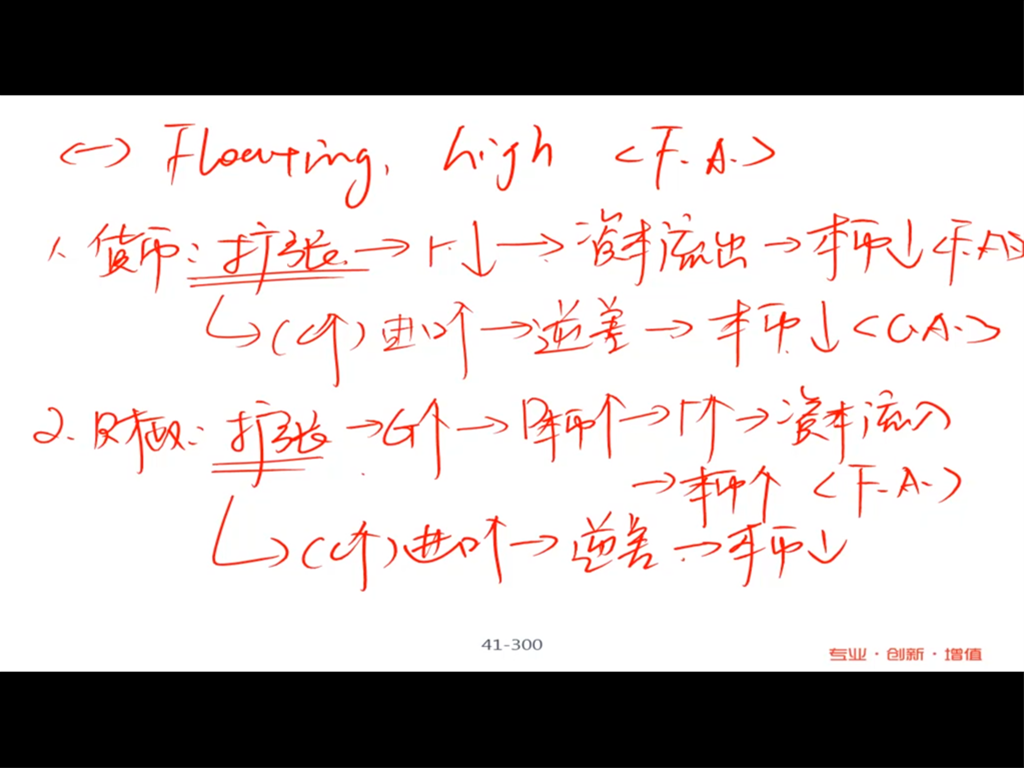 (一) Floating, high <F.A.>
1. 货币: 扩张→r↓→资本流出→本币↓<F.A>
↳(C↑)进口↑→逆差→本币↓<C.A.>
2. 财政: 扩张→G↑→D本币↑→r↑→资本流入
→本币↑ <F.A.>
↳(C↑)进口↑→逆差→本币↓
41-300
专业·创新·增值